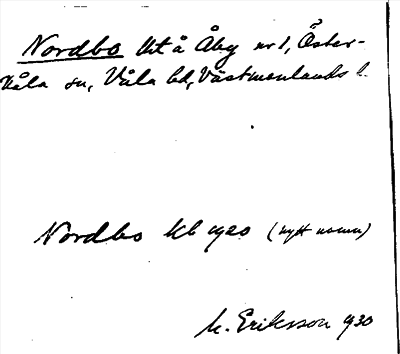 Nordbo lht å Åby nr 1, Öster-
våla sn, Våla hd, Västmanlands l.
Nordbo kb 1920 (nytt namn)
M. Eriksson 1930